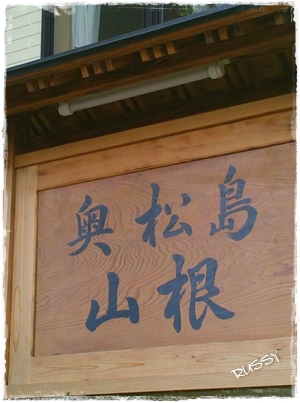 奥松島
山根
RUSSY